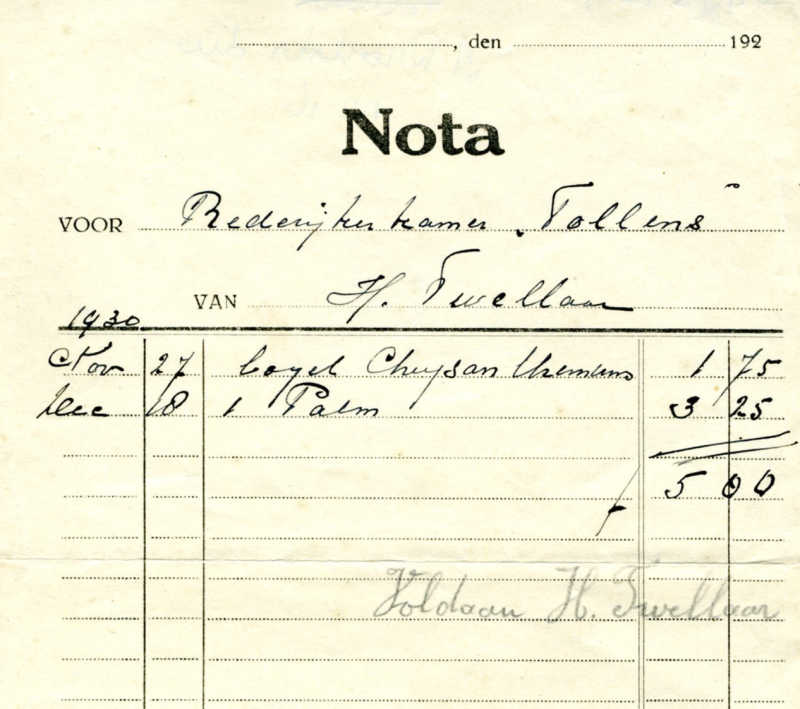 , den 192
Nota
VOOR Rederijkerkamer „Tollens"
VAN H. Twellaar
1930
Nov 27 Chrysanthemums 1 75
Dec 18 1 Palm 3 25
f 5 00
Voldaan H. Twellaar